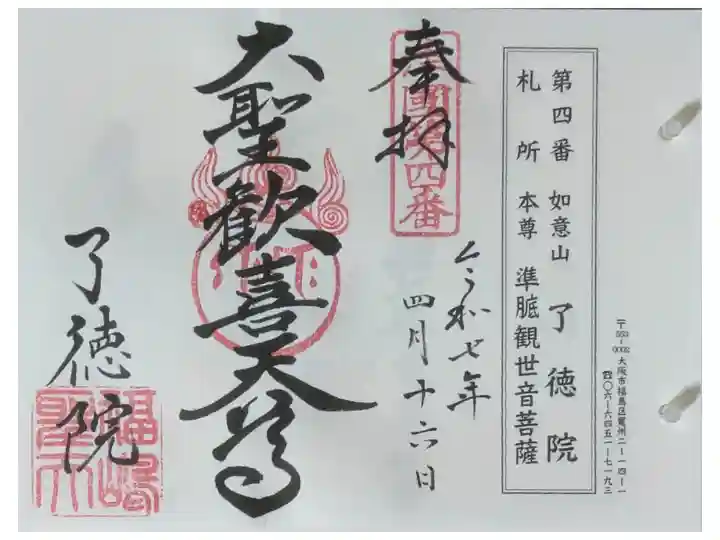 〒553-0002 大阪市福島区鷺州二-一四-一
☎〇六-六四五一-七一九三
第四番 如意山 了徳院
札所本尊 準胝観世音菩薩
奉拝
第四番
令和七年
四月十六日
大聖歓喜天尊
了徳院